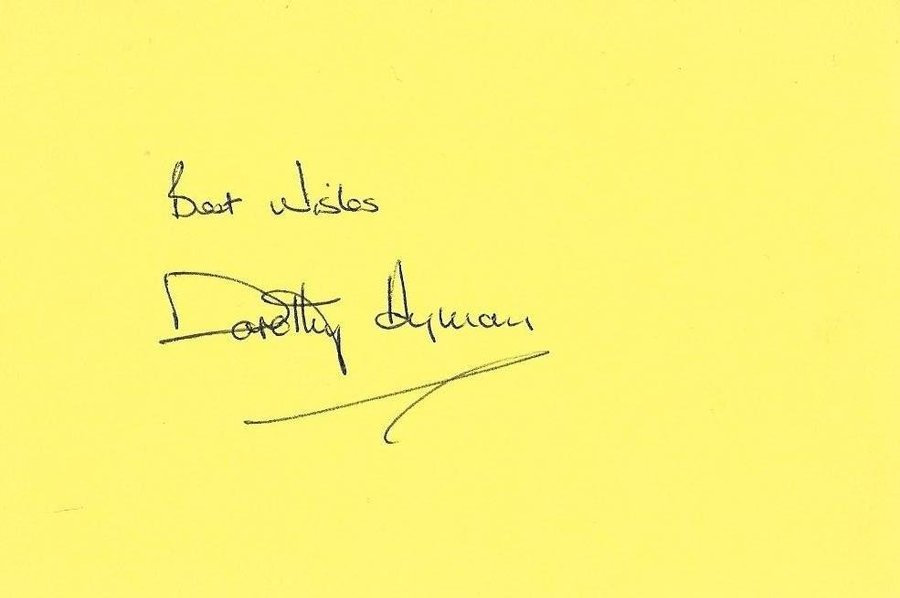 Best Wishes
Dorothy Hyman